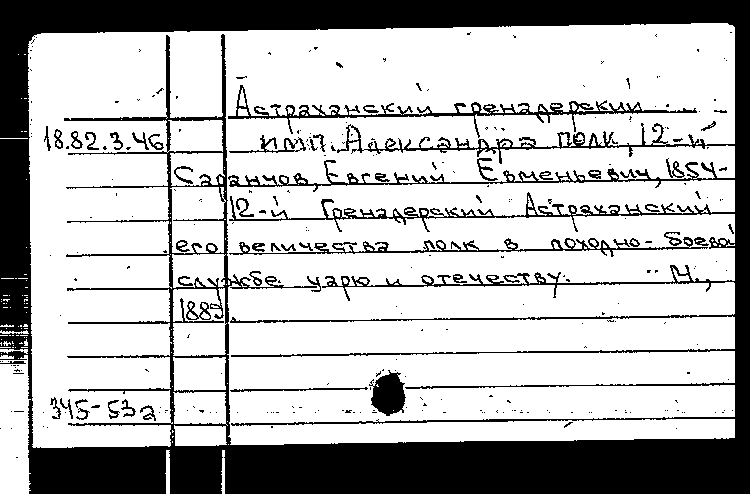 Астраханский гренадерский
18.82.3.46 имп. Александра полк, 12-й
Саранчов, Евгений Евменьевич, 1854-
12-й Гренадерский Астраханский
его величества полк в походно-боевой
службе царю и отечеству. М.,
1889.
345-53а